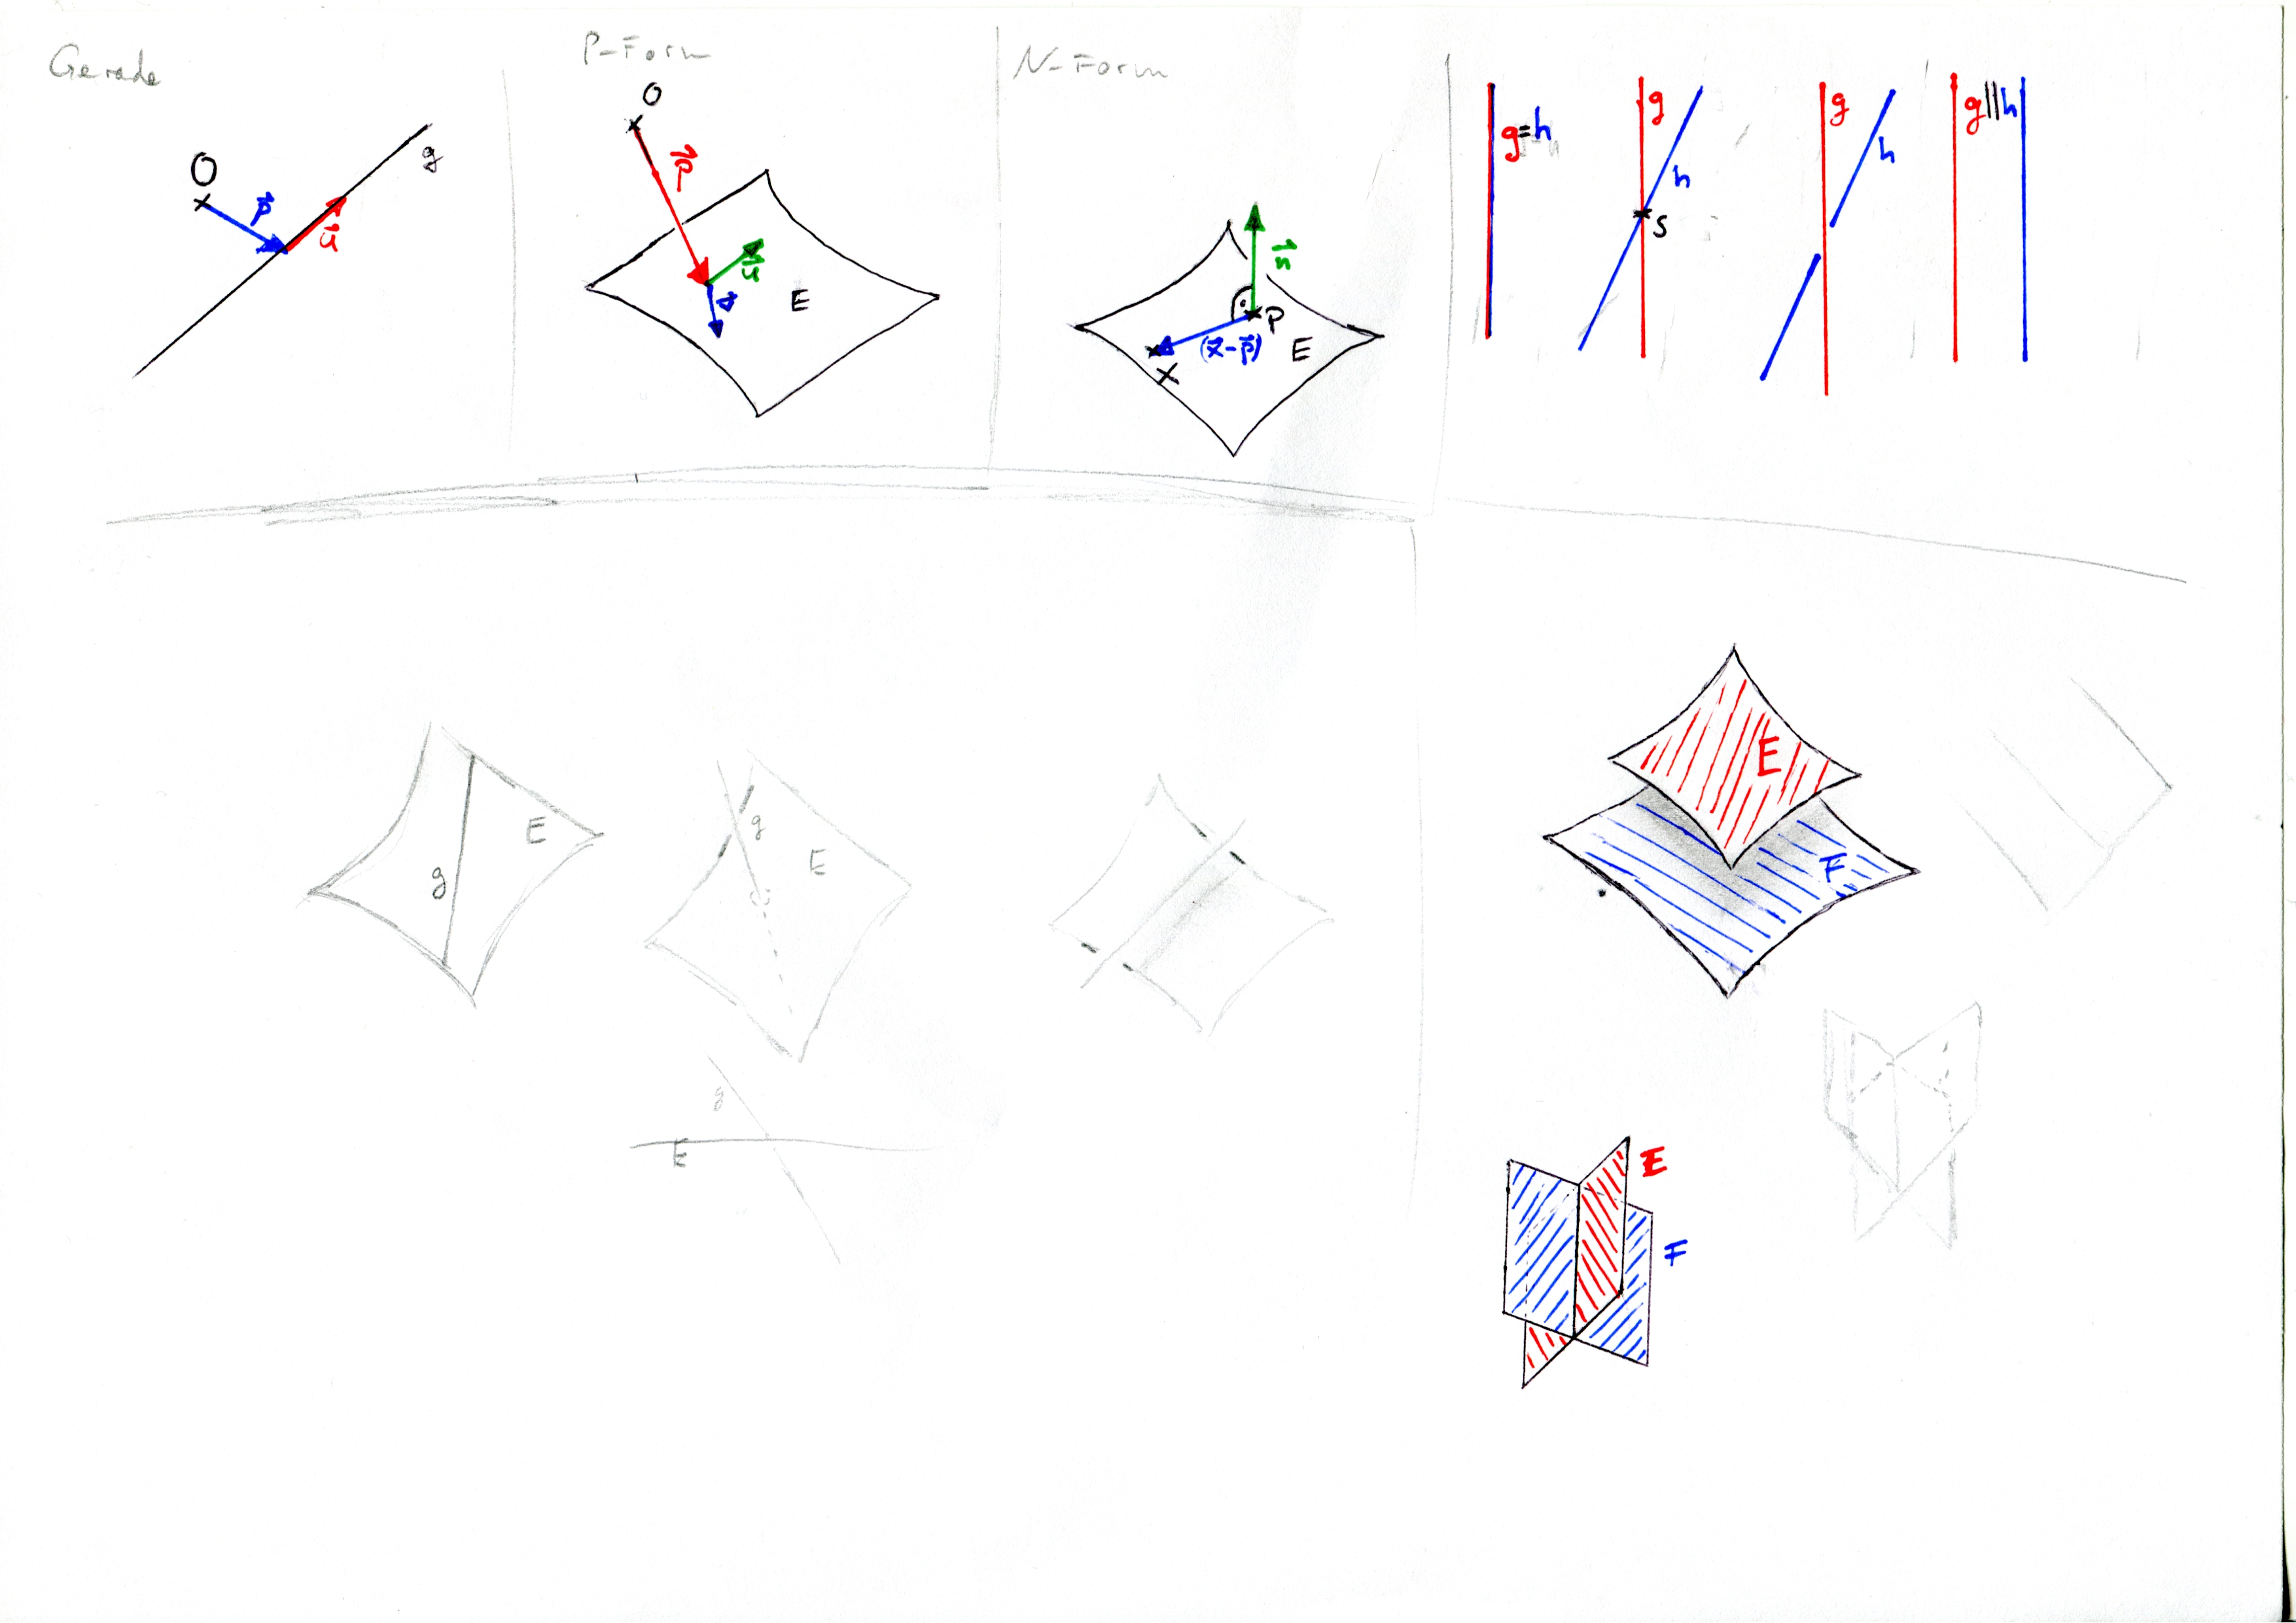 Gerade
O
p⃗
u⃗
g
P-Form
O
p⃗
u⃗
v⃗
E
N-Form
n⃗
P
(x⃗-p⃗)
E
X
g=h
g
h
S
g
h
g||h
g
E
g
E
g
E
E
F
E
F